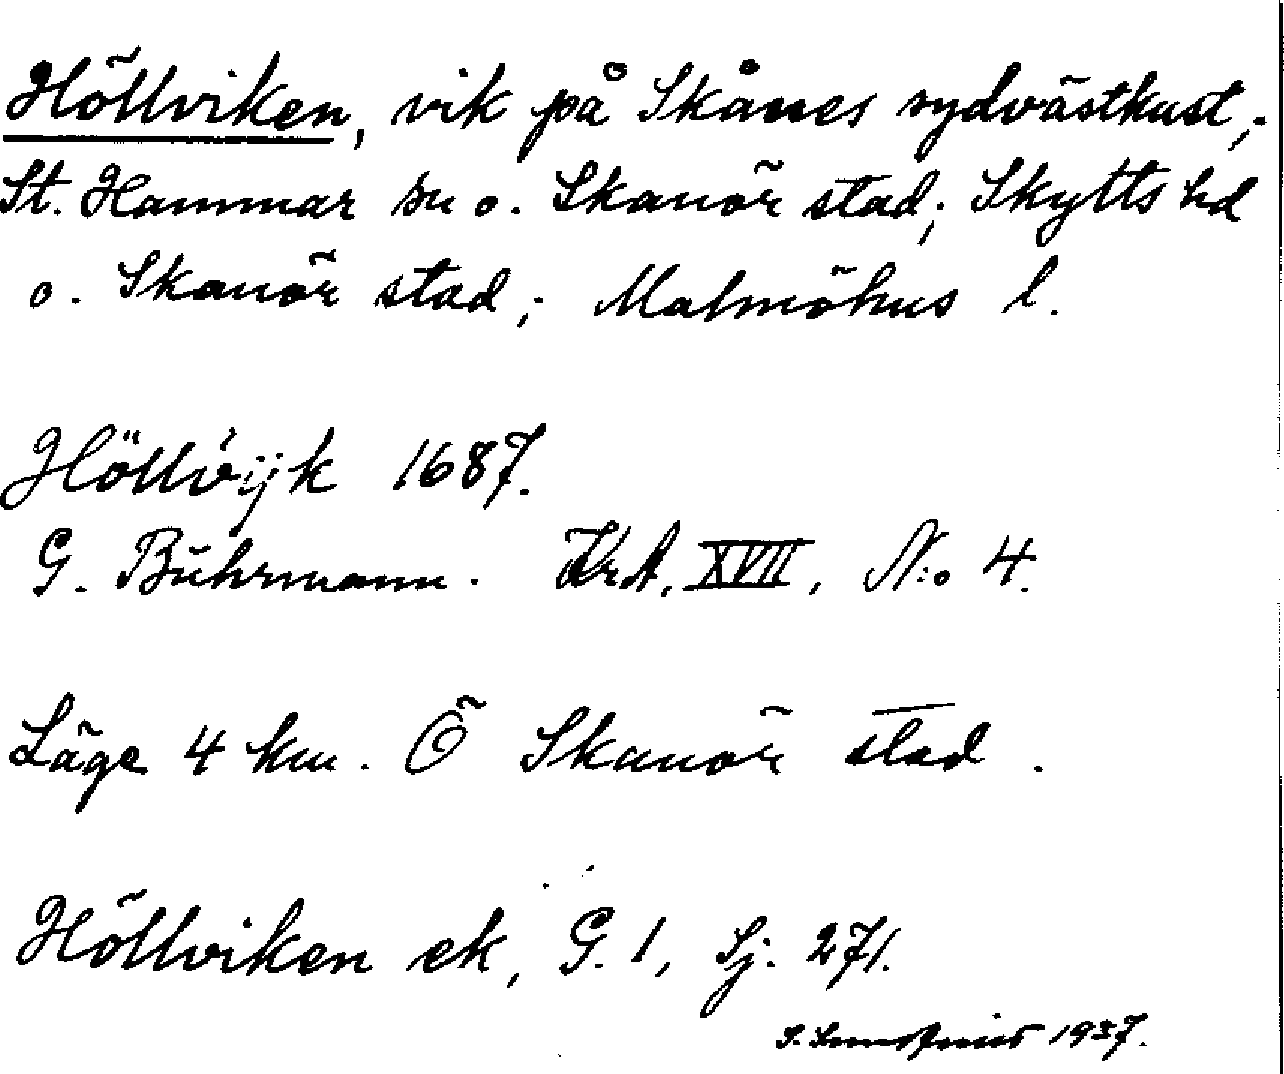 Höllviken, vik på Skånes sydvästkust;
St. Hammar sn o. Skanör stad; Skytts hd
o. Skanör stad; Malmöhus l.
Höllvijk 1687.
G. Bührmann. KrA, XVII, N:o 4.
Läge 4 km. Ö Skanör stad.
Höllviken ek, G. 1, Sj. 271.
S. 1937.